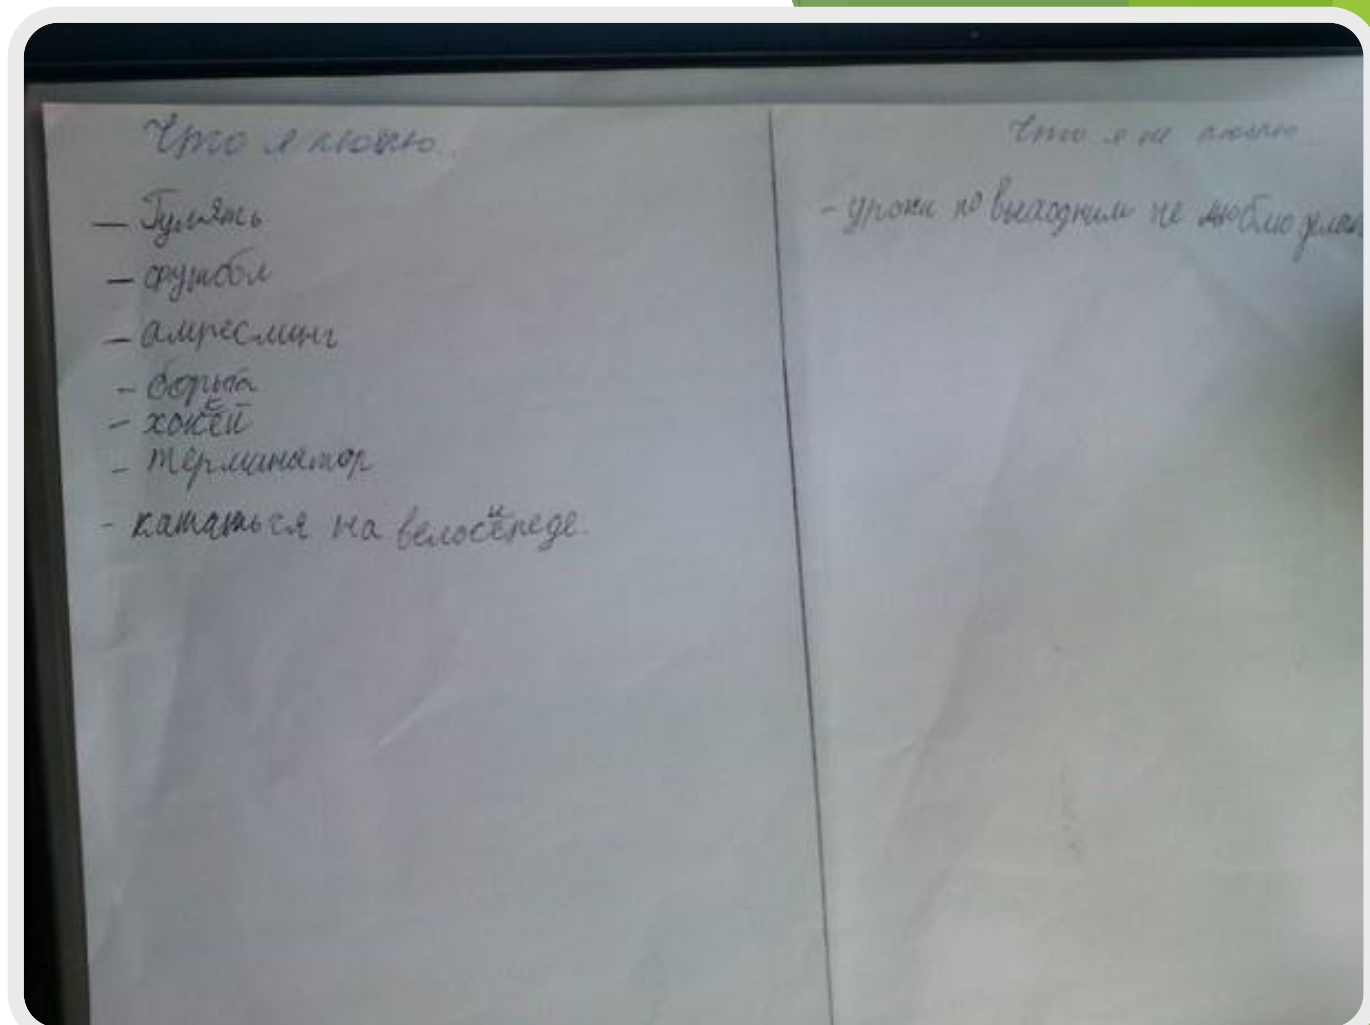 Что я люблю
— Гулять
— футбол
— амресминг
- борьба
- хоккей
- терминатор
- кататься на велосипеде.
Что я не люблю
- уроки по выходним не люблю